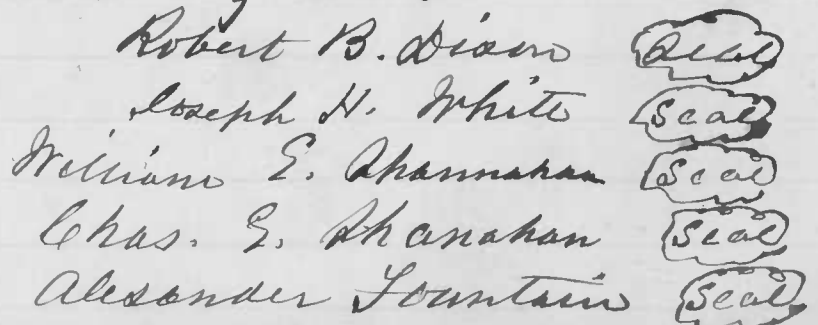 Robert B. Dixon Seal
Joseph H. White Seal
William E. Shannahan Seal
Chas. E. Shanahan Seal
Alexander Fountain Seal